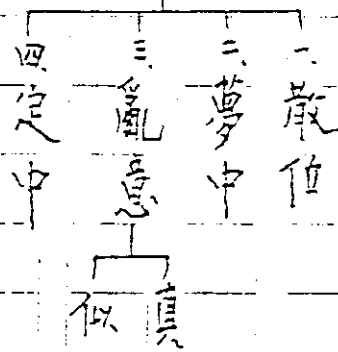 一、散位
二、夢中
三、亂意
真
似
四、定中